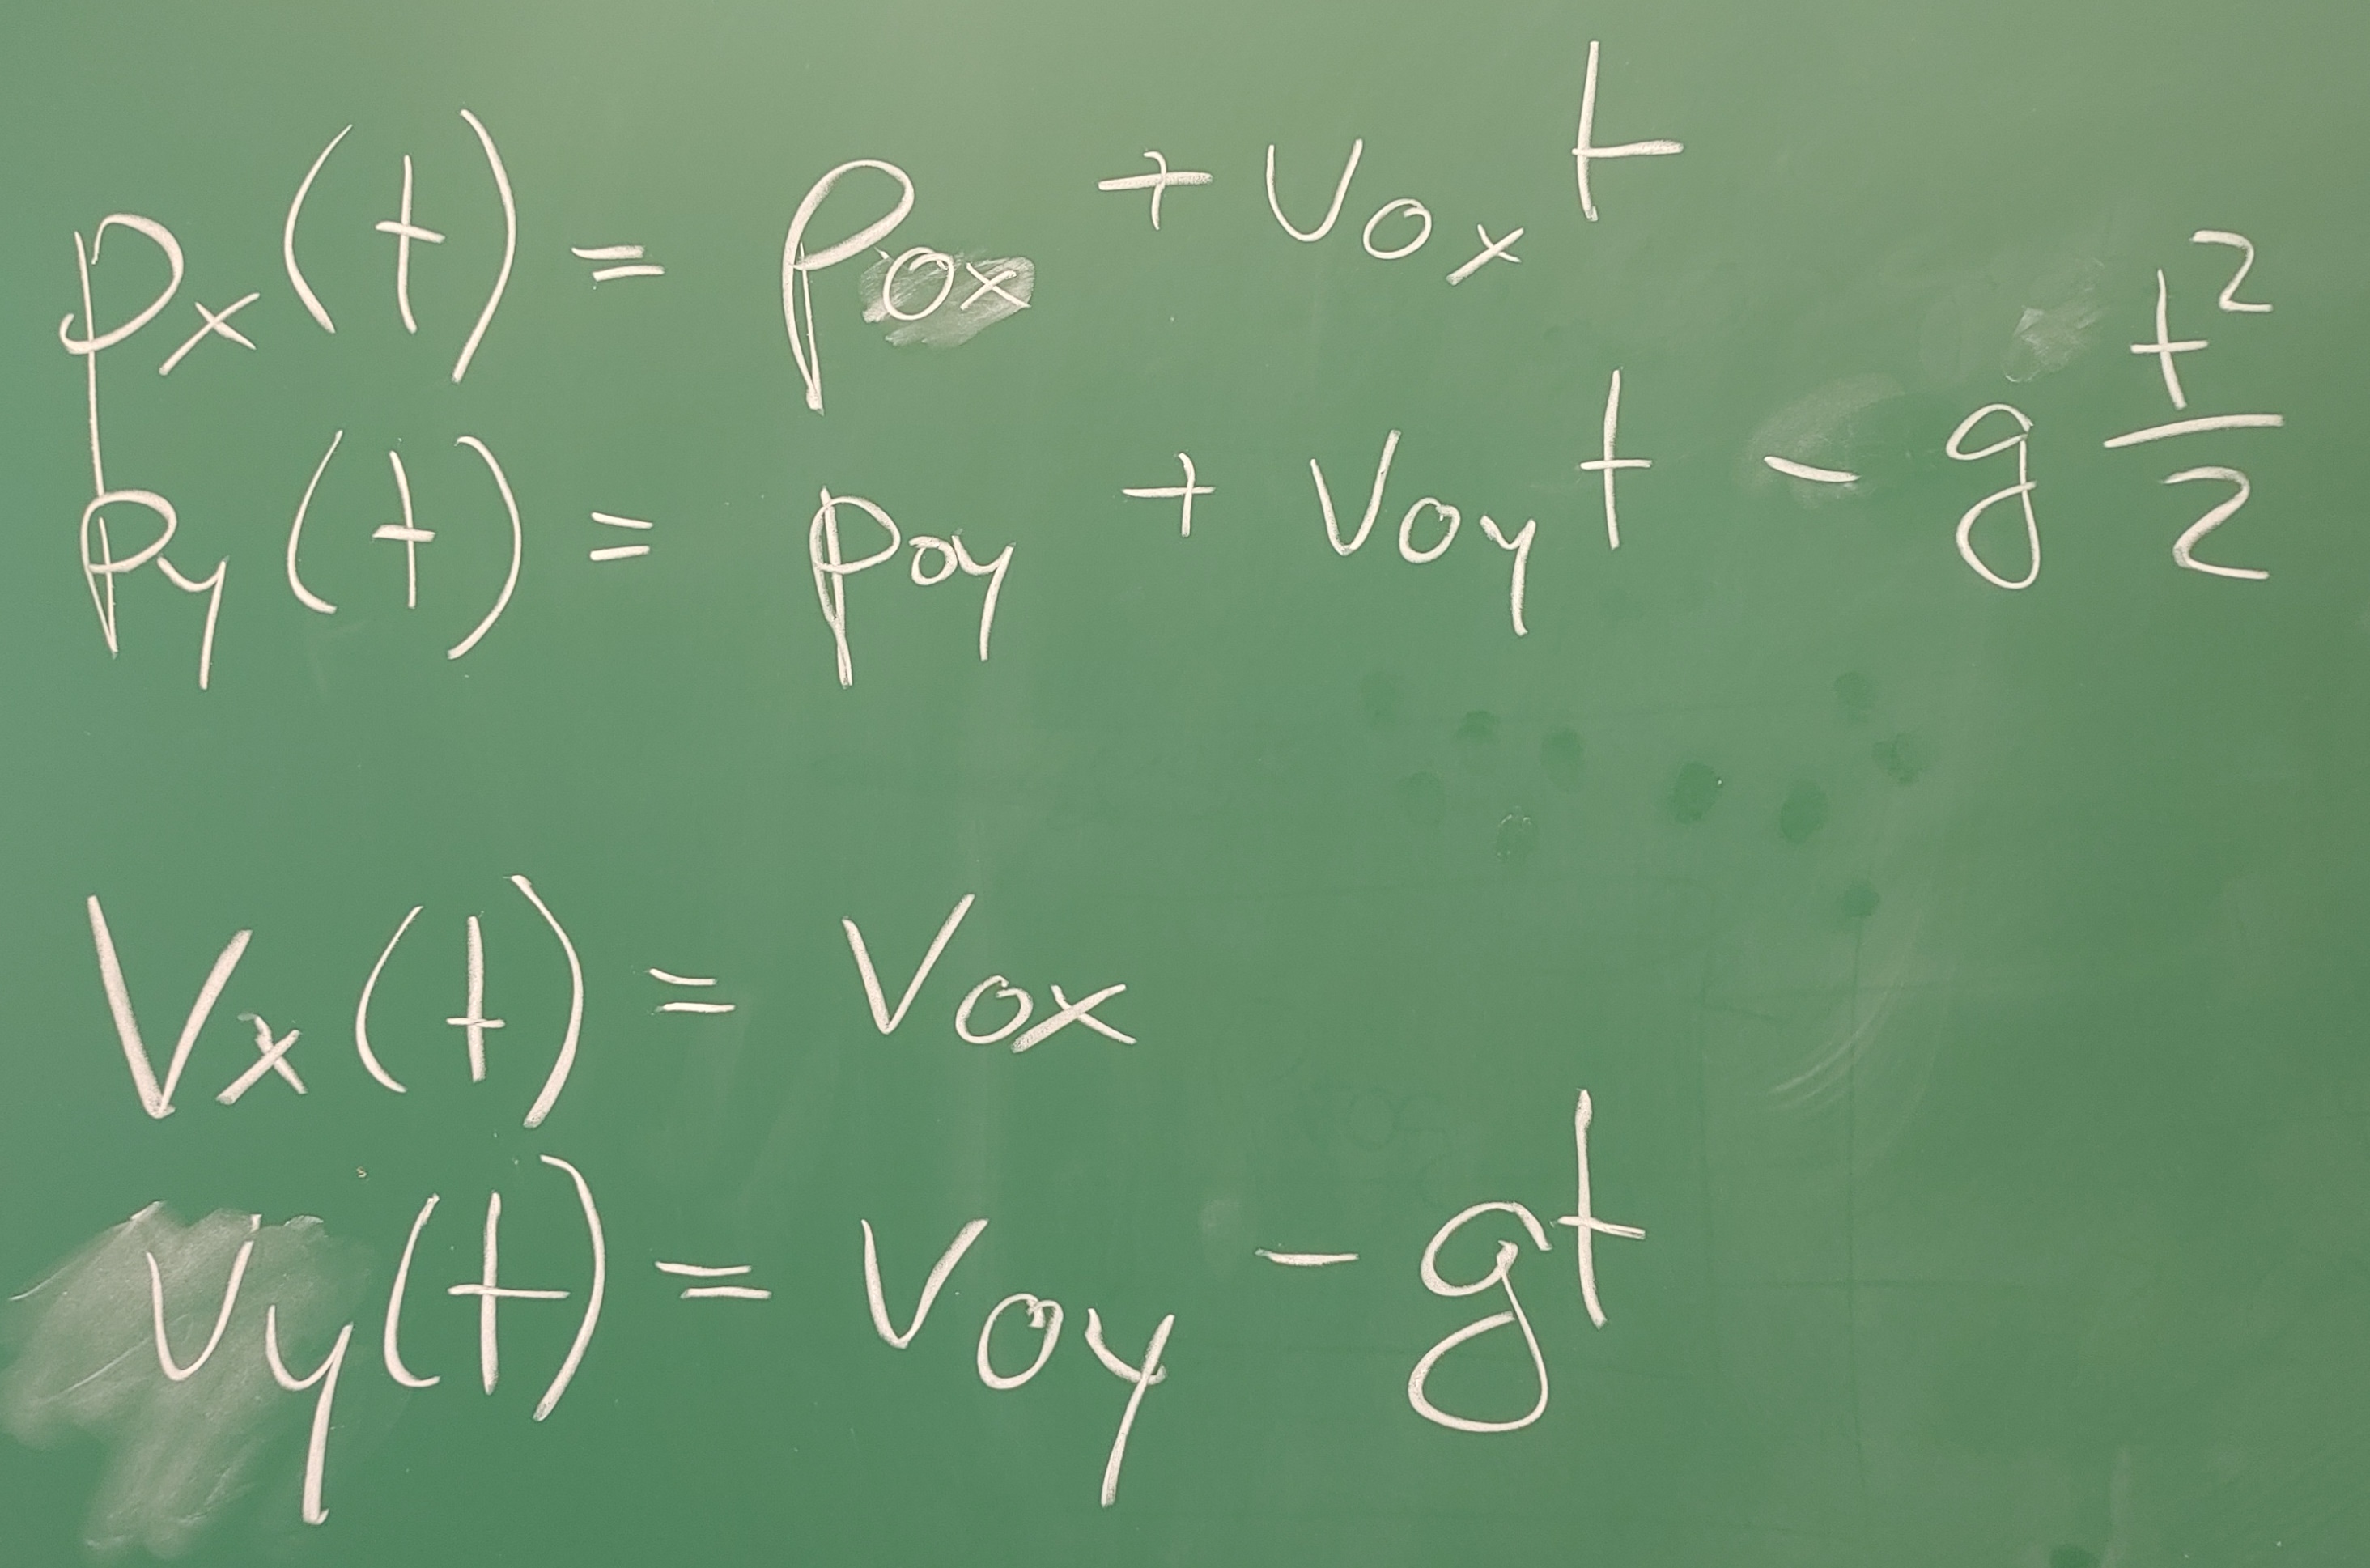 p_x(t) = p_0x + v_0x t
p_y(t) = p_0y + v_0y t - g t^2/2
v_x(t) = v_0x
v_y(t) = v_0y - gt